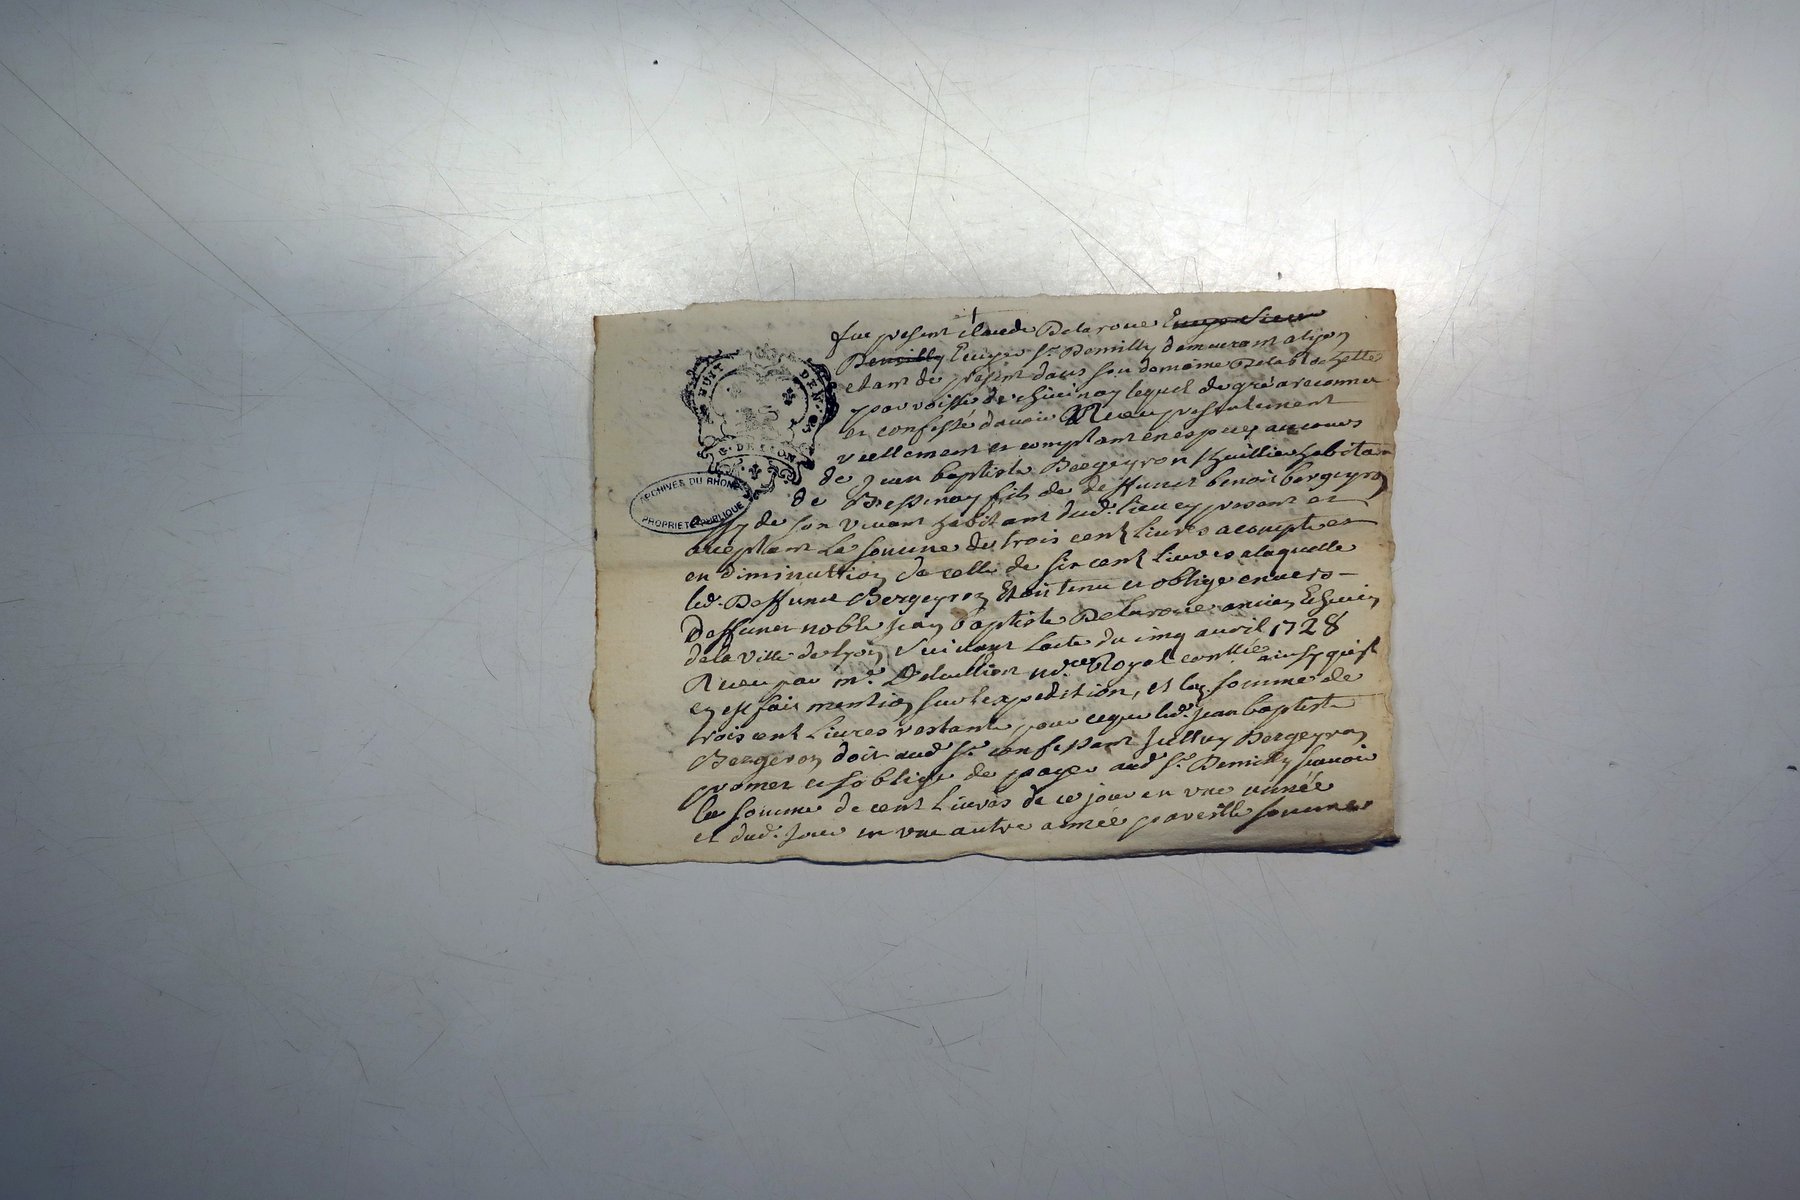 HUIT DEN.
G. DE LYON
ARCHIVES DU RHONE
PROPRIETE PUBLIQUE
fut present Claude Delaroue
Demilly Ecuyer Sr. Demilly demeurant a lyon
etant de present dans son domaine
parroisse de Chivinay lequel de gré a reconnu
et confessé d'avoir Receu presentement
reellement et comptant en especes au cours
de Jean baptiste Bergeyron habitan
de Bessenay fils de deffunct benoit bergeyron
de son vivant habitant dud. lieu cy present et
acceptant la somme de trois cent livres acompte et
en diminuttion de celle de six cent livres a laquelle
led. Deffunct Bergeyron Etoit tenu et obligé envers
Deffunct noble Jean baptiste Delaroue ancien Echevin
de la ville de lyon suivant lacte du cinq avril 1728
Receu par me. Royal ainsy quil
en est fait mention sur lexpedition, et la somme de
trois cent Livres restante pour ce que led. Jean baptiste
Bergeron doit aud. Sr. confessant Icelluy Bergeyron
promet et soblige de payer aud. Sr. Demilly scavoir
la somme de cent Livres de ce jour en une année
et dud. Jour en une autre année pareille somme